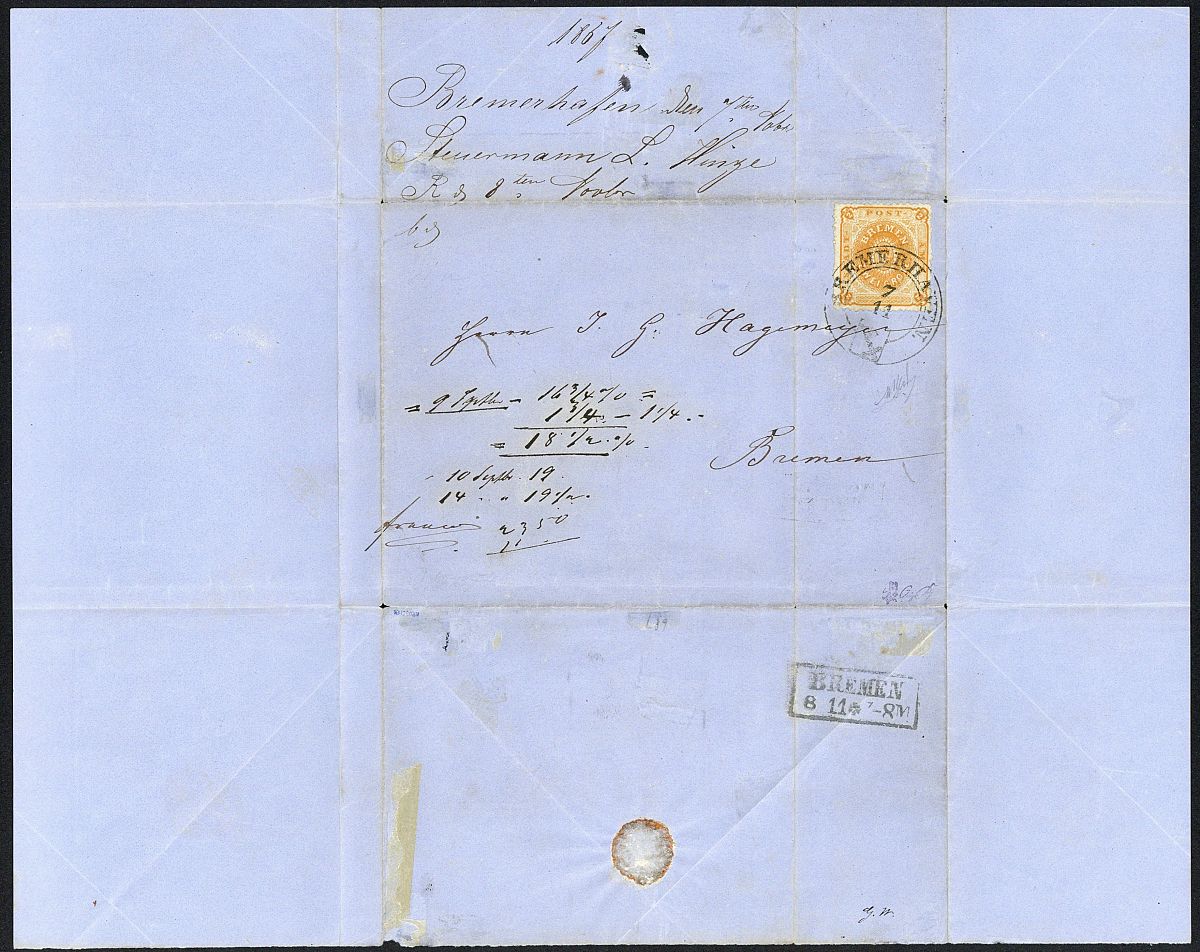 1867
Bremerhafen den 7ten Novbr
Steuermann L. Winge
R d 8ten Novbr
POST
BREMEN
BREMERHAVEN
7
11
Herrn J. G. Hagemeyer
= 9 Septbr - 16 3/4 % =
1 3/4 - 1 1/4 -
= 18 1/2 %
Bremen
10 Septbr. 19
14 " 19 1/2
franco
23 50
BREMEN
8 11 * 7-8M
G. W.